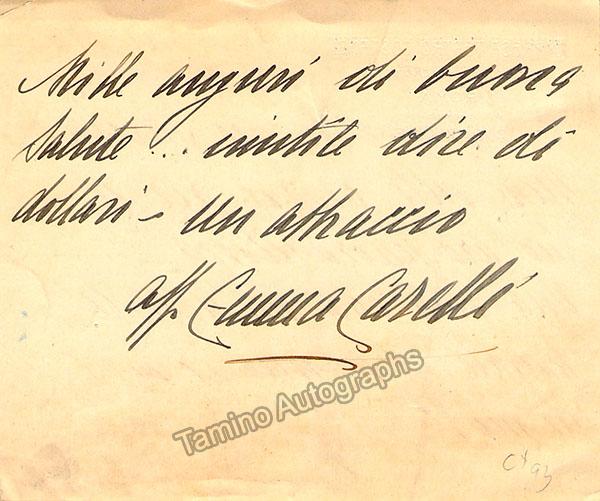 Mille auguri di buona
salute... inutile dire di
dollari – Un abbraccio
aff. Emma Carelli
Tamino Autographs